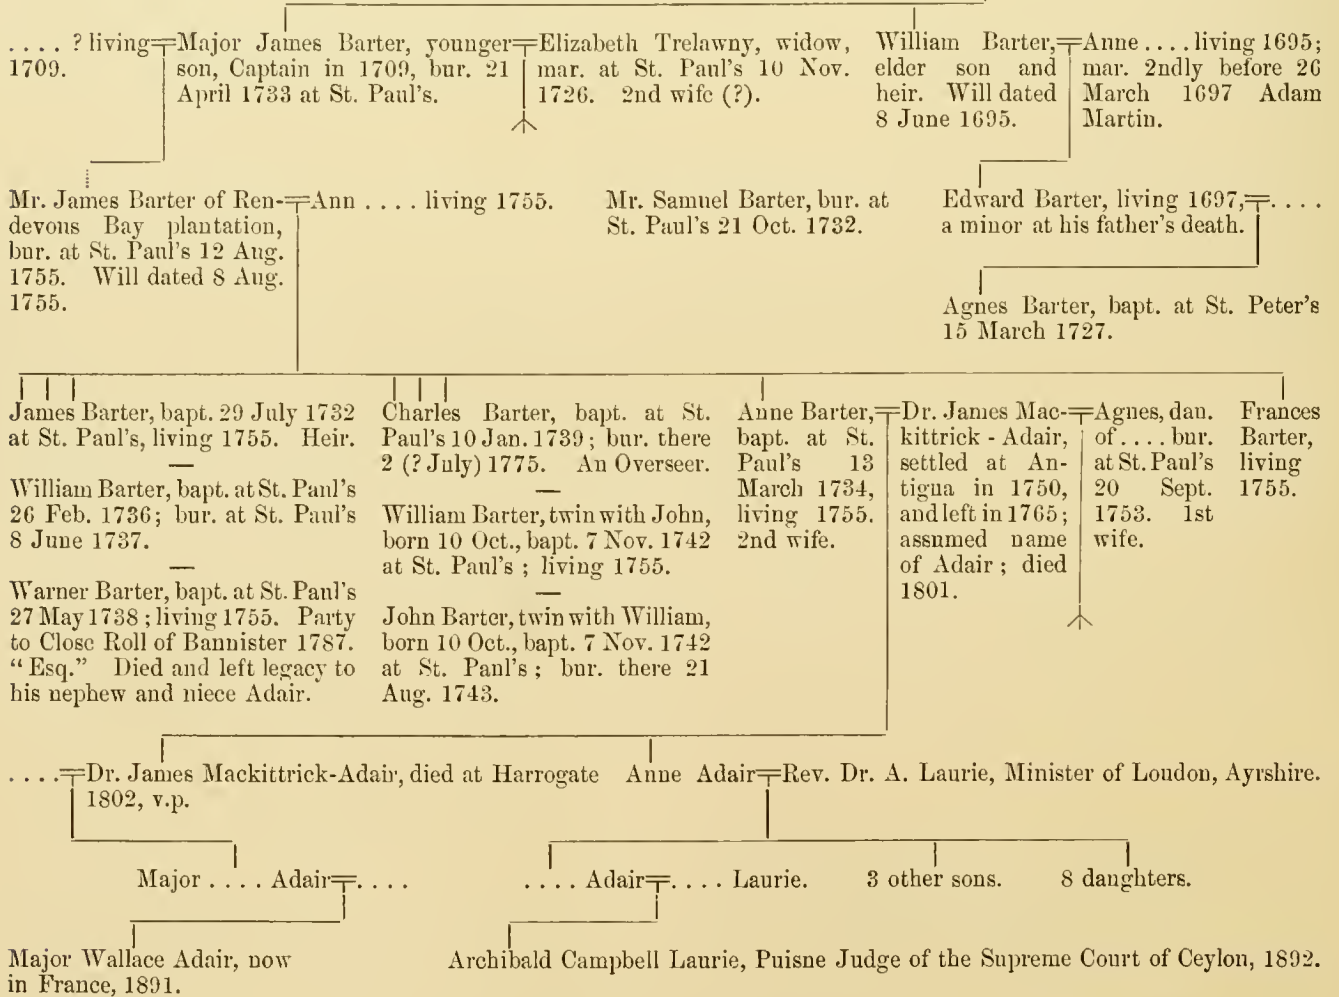 . . . . ? living
1709.
Major James Barter, younger
son, Captain in 1709, bur. 21
April 1733 at St. Paul's.
Elizabeth Trelawny, widow,
mar. at St. Paul's 10 Nov.
1726. 2nd wife (?).
William Barter,
elder son and
heir. Will dated
8 June 1695.
Anne . . . . living 1695;
mar. 2ndly before 26
March 1697 Adam
Martin.
Mr. James Barter of Ren-
devous Bay plantation,
bur. at St. Paul's 12 Aug.
1755. Will dated 8 Aug.
1755.
Ann . . . . living 1755.
Mr. Samuel Barter, bur. at
St. Paul's 21 Oct. 1732.
Edward Barter, living 1697,
a minor at his father's death.
. . . .
Agnes Barter, bapt. at St. Peter's
15 March 1727.
James Barter, bapt. 29 July 1732
at St. Paul's, living 1755. Heir.
—
William Barter, bapt. at St. Paul's
26 Feb. 1736; bur. at St. Paul's
8 June 1737.
—
Warner Barter, bapt. at St. Paul's
27 May 1738; living 1755. Party
to Close Roll of Bannister 1787.
"Esq." Died and left legacy to
his nephew and niece Adair.
Charles Barter, bapt. at St.
Paul's 10 Jan. 1739; bur. there
2 (? July) 1775. An Overseer.
—
William Barter, twin with John,
born 10 Oct., bapt. 7 Nov. 1742
at St. Paul's; living 1755.
—
John Barter, twin with William,
born 10 Oct., bapt. 7 Nov. 1742
at St. Paul's; bur. there 21
Aug. 1743.
Anne Barter,
bapt. at St.
Paul's 13
March 1734,
living 1755.
2nd wife.
Dr. James Mac-
kittrick-Adair,
settled at An-
tigua in 1750,
and left in 1765;
assumed name
of Adair; died
1801.
Agnes, dau.
of . . . . bur.
at St. Paul's
20 Sept.
1753. 1st
wife.
Frances
Barter,
living
1755.
. . . .
Dr. James Mackittrick-Adair, died at Harrogate
1802, v.p.
Anne Adair
Rev. Dr. A. Laurie, Minister of Loudon, Ayrshire.
Major . . . . Adair
. . . .
. . . . Adair
. . . . Laurie.
3 other sons.
8 daughters.
Major Wallace Adair, now
in France, 1891.
Archibald Campbell Laurie, Puisne Judge of the Supreme Court of Ceylon, 1892.